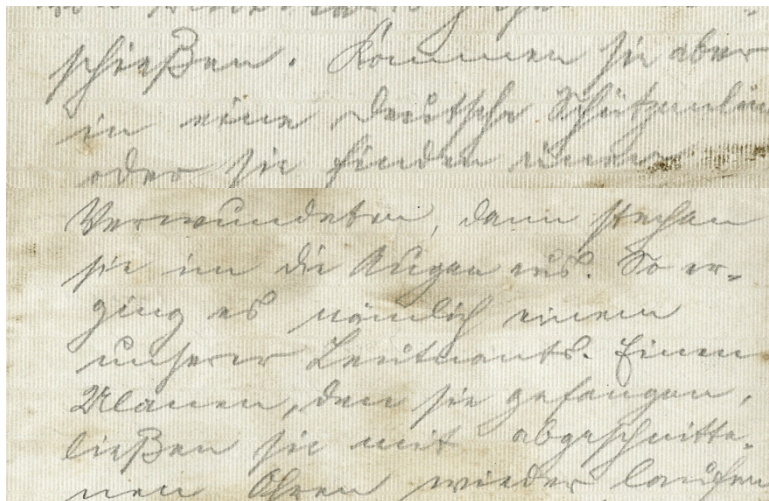 schießen. Kommen sie aber
in eine deutsche Schützenlin
oder sie finden einen
Verwundeten, dann stechen
sie im die Augen aus. So er-
ging es nämlich einem
unserer Leutnants. Einen
Ulanen, den sie gefangen,
ließen sie mit abgeschnitte-
nen Ohren wieder laufen